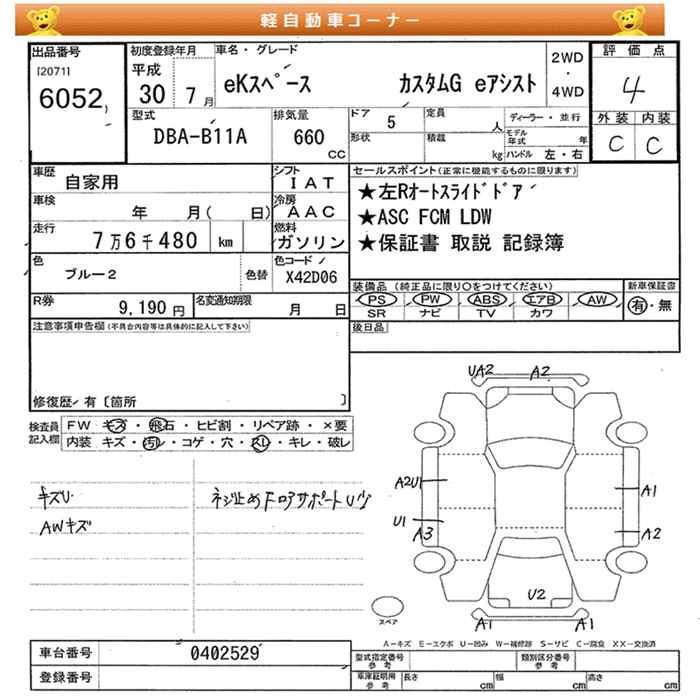 軽自動車コーナー
出品番号 初度登録年月 車名・グレード 2WD 評価点
[2071] 平成 eKスペース カスタムG eアシスト ・ 4
6052 30 7月 4WD
型式 排気量 ドア 5 定員 人 ディーラー・並行 外装 内装
DBA-B11A 660 CC 形状 積載 kg モデル年式 年 C C
ハンドル 左・右
車歴 自家用 シフト IAT セールスポイント(正常に機能するものに限ります)
車検 年 月( 日) 冷房 AAC ★左Rオートスライドドア
走行 7万6千480 km 燃料 ガソリン ★ASC FCM LDW
色 ブルー2 色替 色コード X42D06 ★保証書 取説 記録簿
装備品(純正品に限り○をつけてください) 新車保証書
R券 9,190円 名変通知期限 月 日 PS PW ABS エアB AW 有・無
SR ナビ TV カワ
注意事項申告欄(不具合内容等は具体的に記入して下さい) 後日品
修復歴・有〔箇所 〕
検査員記入欄 FW キズ・飛石・ヒビ割・リペア跡・×要
内装 キズ・汚れ・コゲ・穴・スレ・キレ・破レ
UA2 A2
キズU ネジ止め FロアサポートU少
AWキズ
A2U1 A1
U1 A3 A2
U2
スペア A1 A1
A−キズ E−エクボ U−凹み W−補修跡 S−サビ C−腐食 XX−交換済
車台番号 0402529 型式指定番号 参考 類別区分番号 参考
登録番号 車庫証明用 参考 長さ cm 幅 cm 高さ cm